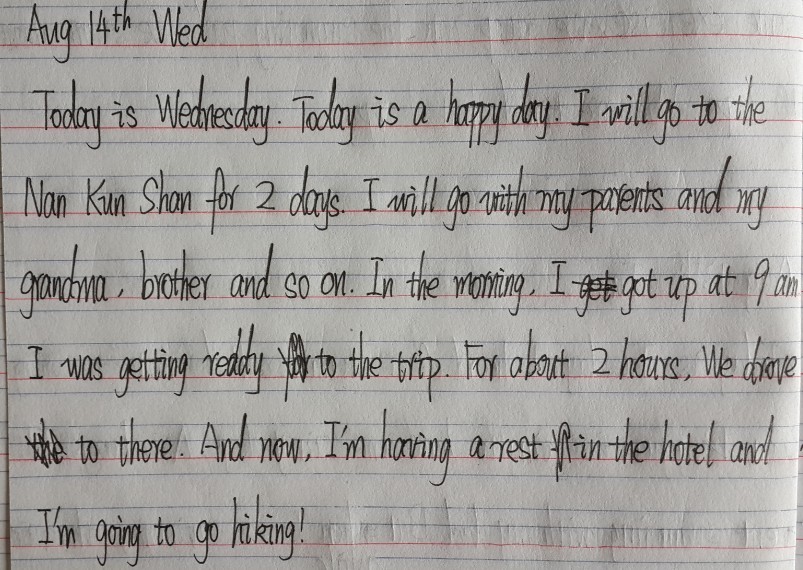 Aug 14th Wed
Today is Wednesday. Today is a happy day. I will go to the
Nan Kun Shan for 2 days. I will go with my parents and my
grandma, brother and so on. In the morning, I get got up at 9 am
I was getting reddy to the trip. For about 2 hours, We drove
to there. And now, I'm having a rest in the hotel and
I'm going to go hiking!